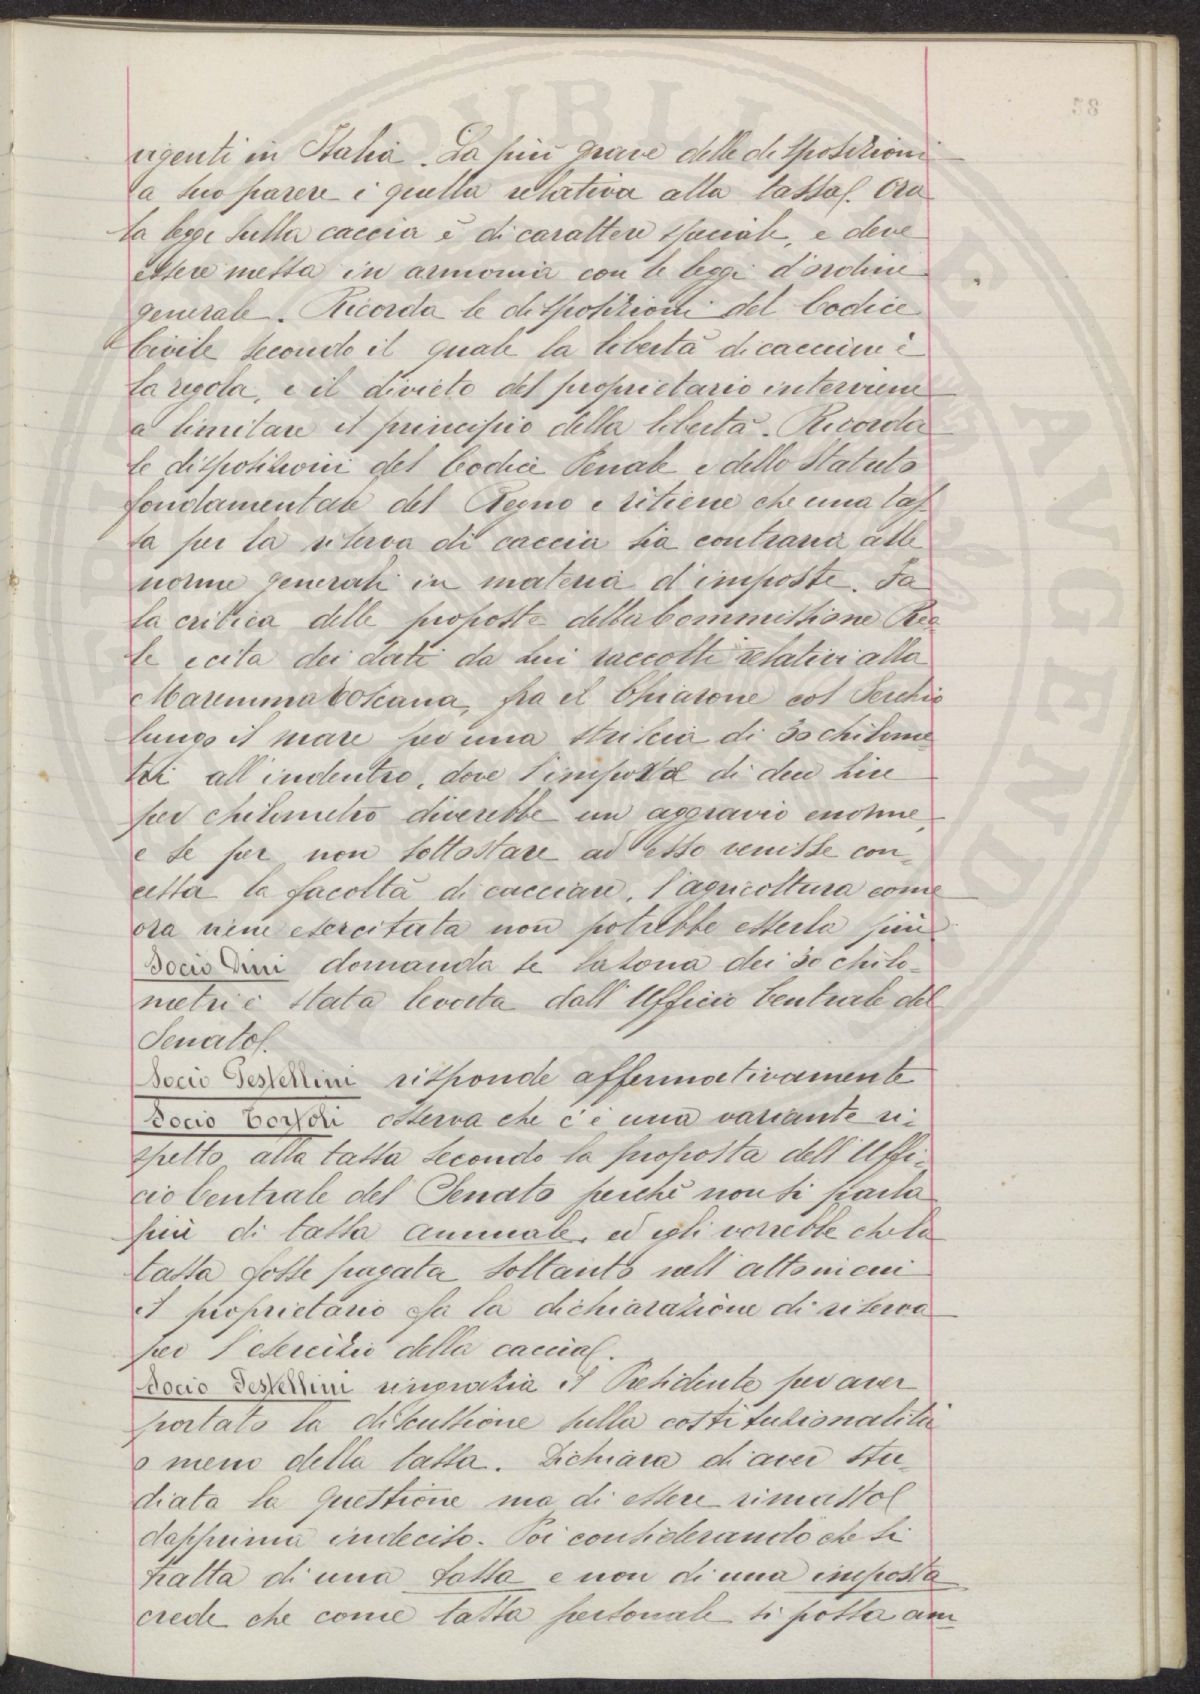 vigenti in Italia. La più grave delle disposizioni
a suo parere è quella relativa alla tassa. Ora
la legge sulla caccia è di carattere speciale, e deve
essere messa in armonia con le leggi d'ordine
generale. Ricorda le disposizioni del Codice
Civile secondo il quale la libertà di cacciare è
la regola, e il divieto del proprietario interviene
a limitare il principio della libertà. Ricorda
le disposizioni del Codice Penale e dello Statuto
fondamentale del Regno e ritiene che una tas
sa per la riserva di caccia sia contraria alle
norme generali in materia d'imposte. Fa
la critica delle proposte della Commissione Rea
le e cita dei dati da lui raccolti relativi alla
Maremma toscana, fra il Chiarone col Serchio
lungo il mare per una striscia di 30 chilome
tri all'indentro, dove l'imposta di dieci lire
per chilometro diverebbe un aggravio enorme,
e se per non sottostare ad esso venisse con=
cessa la facoltà di cacciare, l'agricoltura come
ora viene esercitata non potrebbe esserla più
Socio Dini domanda se la zona dei 30 chilo=
metri è stata levata dall'Ufficio Centrale del
Senato.
Socio Pestellini risponde affermativamente
Socio Torsoli osserva che c'è una variante ri=
spetto alla tassa secondo la proposta dell'Uffi=
cio Centrale del Senato perchè non si parla
più di tassa annuale, ed egli vorrebbe che la
tassa fosse pagata soltanto nell'atto in cui
il proprietario fa la dichiarazione di riserva
per l'esercizio della caccia.
Socio Pestellini ringrazia il Presidente per aver
portato la discussione sulla costituzionalità
o meno della tassa. Dichiara di aver stu=
diata la questione ma di essere rimasto
dapprima indeciso. Poi considerando che si
tratta di una tassa e non di una imposta
crede che come tassa personale si possa am